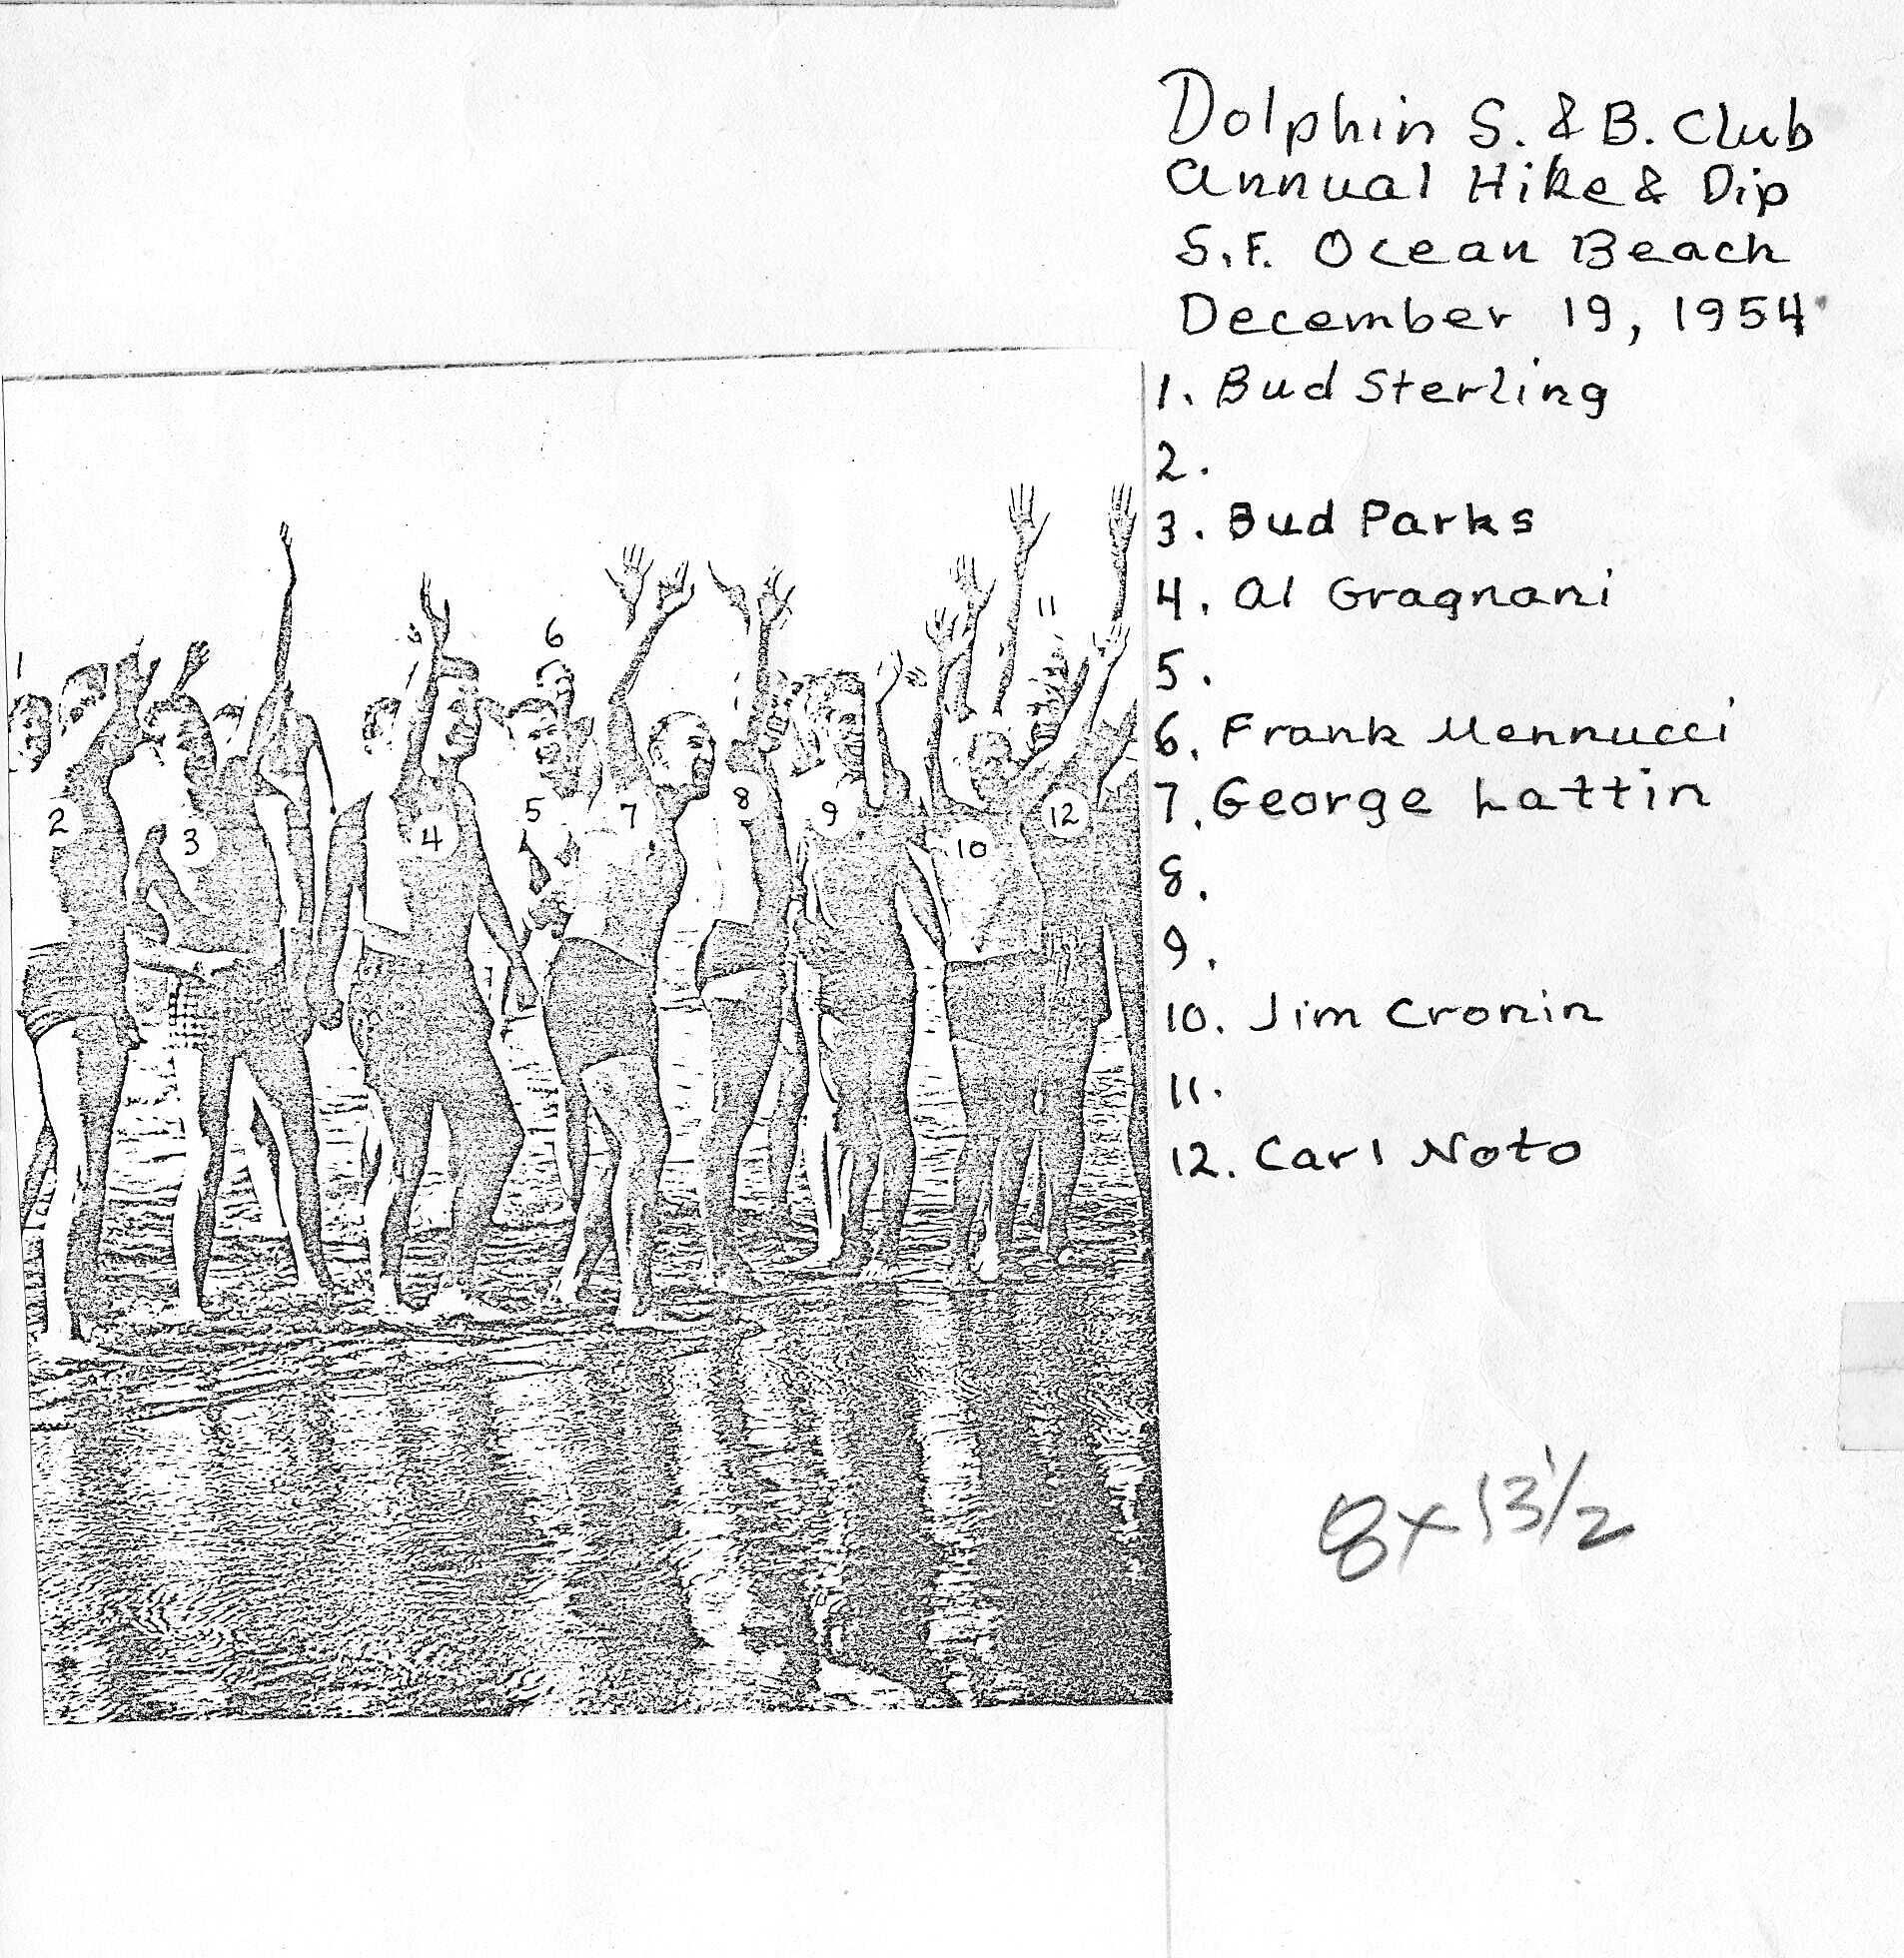 Dolphin S. & B. Club
Annual Hike & Dip
S.F. Ocean Beach
December 19, 1954
1. Bud Sterling
2.
3. Bud Parks
4. Al Gragnani
5.
6. Frank Mennucci
7. George Lattin
8.
9.
10. Jim Cronin
11.
12. Carl Noto
8 x 13 1/2
1
6
11
2
3
4
5
7
8
9
10
12